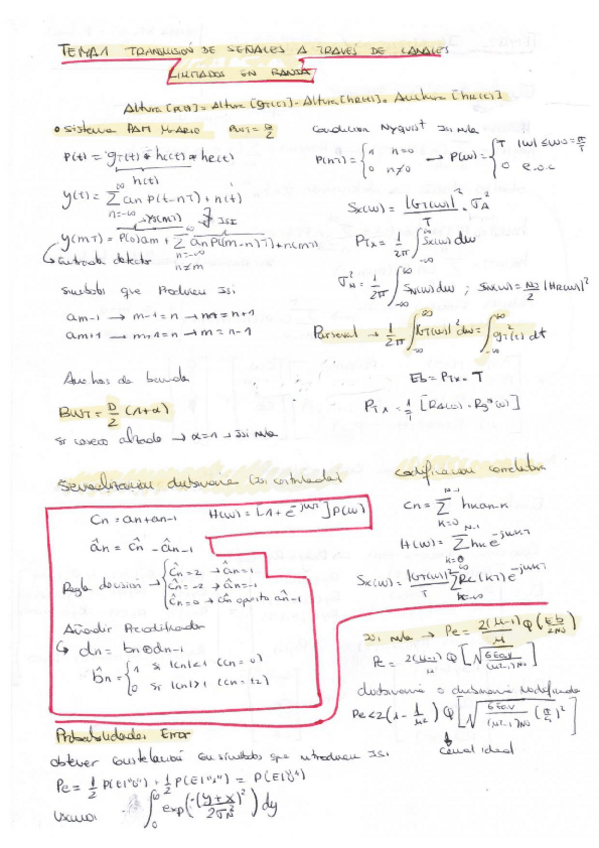 TEMA 1 TRANSMISIÓN DE SEÑALES A TRAVÉS DE CANALES
LIMITADOS EN BANDA
Altura [p(t)] = Altura [gT(t)] · Altura [hR(t)] · Anchura [hR(t)]
• Sistema PAM M-ARIO BWT = D/2
p(t) = gT(t) * hc(t) * he(t)
h(t)
y(t) = ∑ an p(t-nT) + n(t)
n=-∞
y(mT) = p(0)am + ∑ an p((m-n)T) + n(mT)
ISI
↳ Entrada detector
n=-∞
n≠m
Símbolos que Producen Isi
am-1 → m-1=n → m=n+1
am+1 → m+1=n → m=n-1
Anchos de banda
BWT = D/2 (1+α)
si coseno alzado → α=1 → isi nula
Condicion Nyquist Isi nula
p(nT) = { 1 n=0 → P(w) = { T |w| ≤ w0 = π/T
0 n≠0 0 e.o.c
Sx(w) = |GT(w)|²/T · σA²
PTx = 1/2π ∫ Sx(w) dw
σN² = 1/2π ∫ SN(w) dw ; SN(w) = N0/2 |HR(w)|²
Parseval → 1/2π ∫ |GT(w)|² dw = ∫ gT²(t) dt
Eb = PTx · T
PTx = 1/T [RA(0) · Rg(0)]
Señalización duobinaria (ISI controlada)
Cn = an + an-1 H(w) = [1 + e^-jwT] P(w)
ân = ĉn - ân-1
Regla decisión → { ĉn = 2 → ân = 1
ĉn = -2 → ân = -1
ĉn = 0 → ân opuesto ân-1
Añadir Precodificador
↳ dn = bn ⊕ dn-1
b̂n = { 1 si |cn| < 1 (cn = 0)
0 si |cn| > 1 (cn = ±2)
codificacion correlativa
Cn = ∑ hk an-k
H(w) = ∑ hk e^-jwkT
Sx(w) = |GT(w)|²/T ∑ Rc(kT) e^-jwkT
isi nula → Pe = 2(M-1)/M Q(Eb/2N0)
Pe = 2(M-1)/M Q[√6EAV/(M²-1)N0]
duobinaria o duobinaria modificada
Pe < 2(1 - 1/M²) Q[√6EAV/(M²-1)N0 (π/4)²]
canal ideal
Probabilidades Error
obtener constelación con símbolos que introducen Isi
Pe = 1/2 P(E|"0") + 1/2 P(E|"1") = P(E|"1")
usamos ∫ exp(-(y+x)²/2σN²) dy